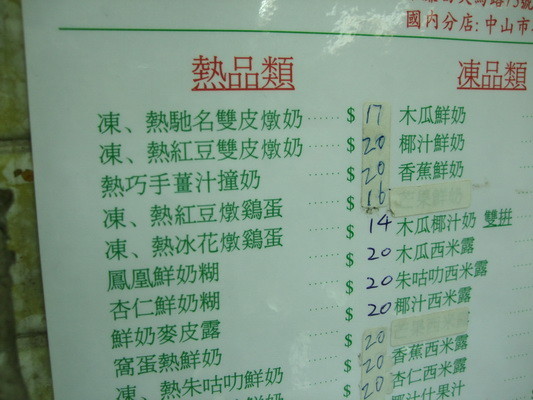 國內分店: 中山市
熱品類
凍、熱馳名雙皮燉奶 $ 17
凍、熱紅豆雙皮燉奶 $ 20
熱巧手薑汁撞奶 $ 20
凍、熱紅豆燉鷄蛋 $ 16
凍、熱冰花燉鷄蛋 $ 14
鳳凰鮮奶糊 $ 20
杏仁鮮奶糊 $ 20
鮮奶麥皮露 $ 20
窩蛋熱鮮奶 $ 20
凍、熱朱咕叻鮮奶 $ 20
$ 20
凍品類
木瓜鮮奶
椰汁鮮奶
香蕉鮮奶
木瓜椰汁奶 雙拼
木瓜西米露
朱咕叻西米露
椰汁西米露
香蕉西米露
杏仁西米露
椰汁什果汁